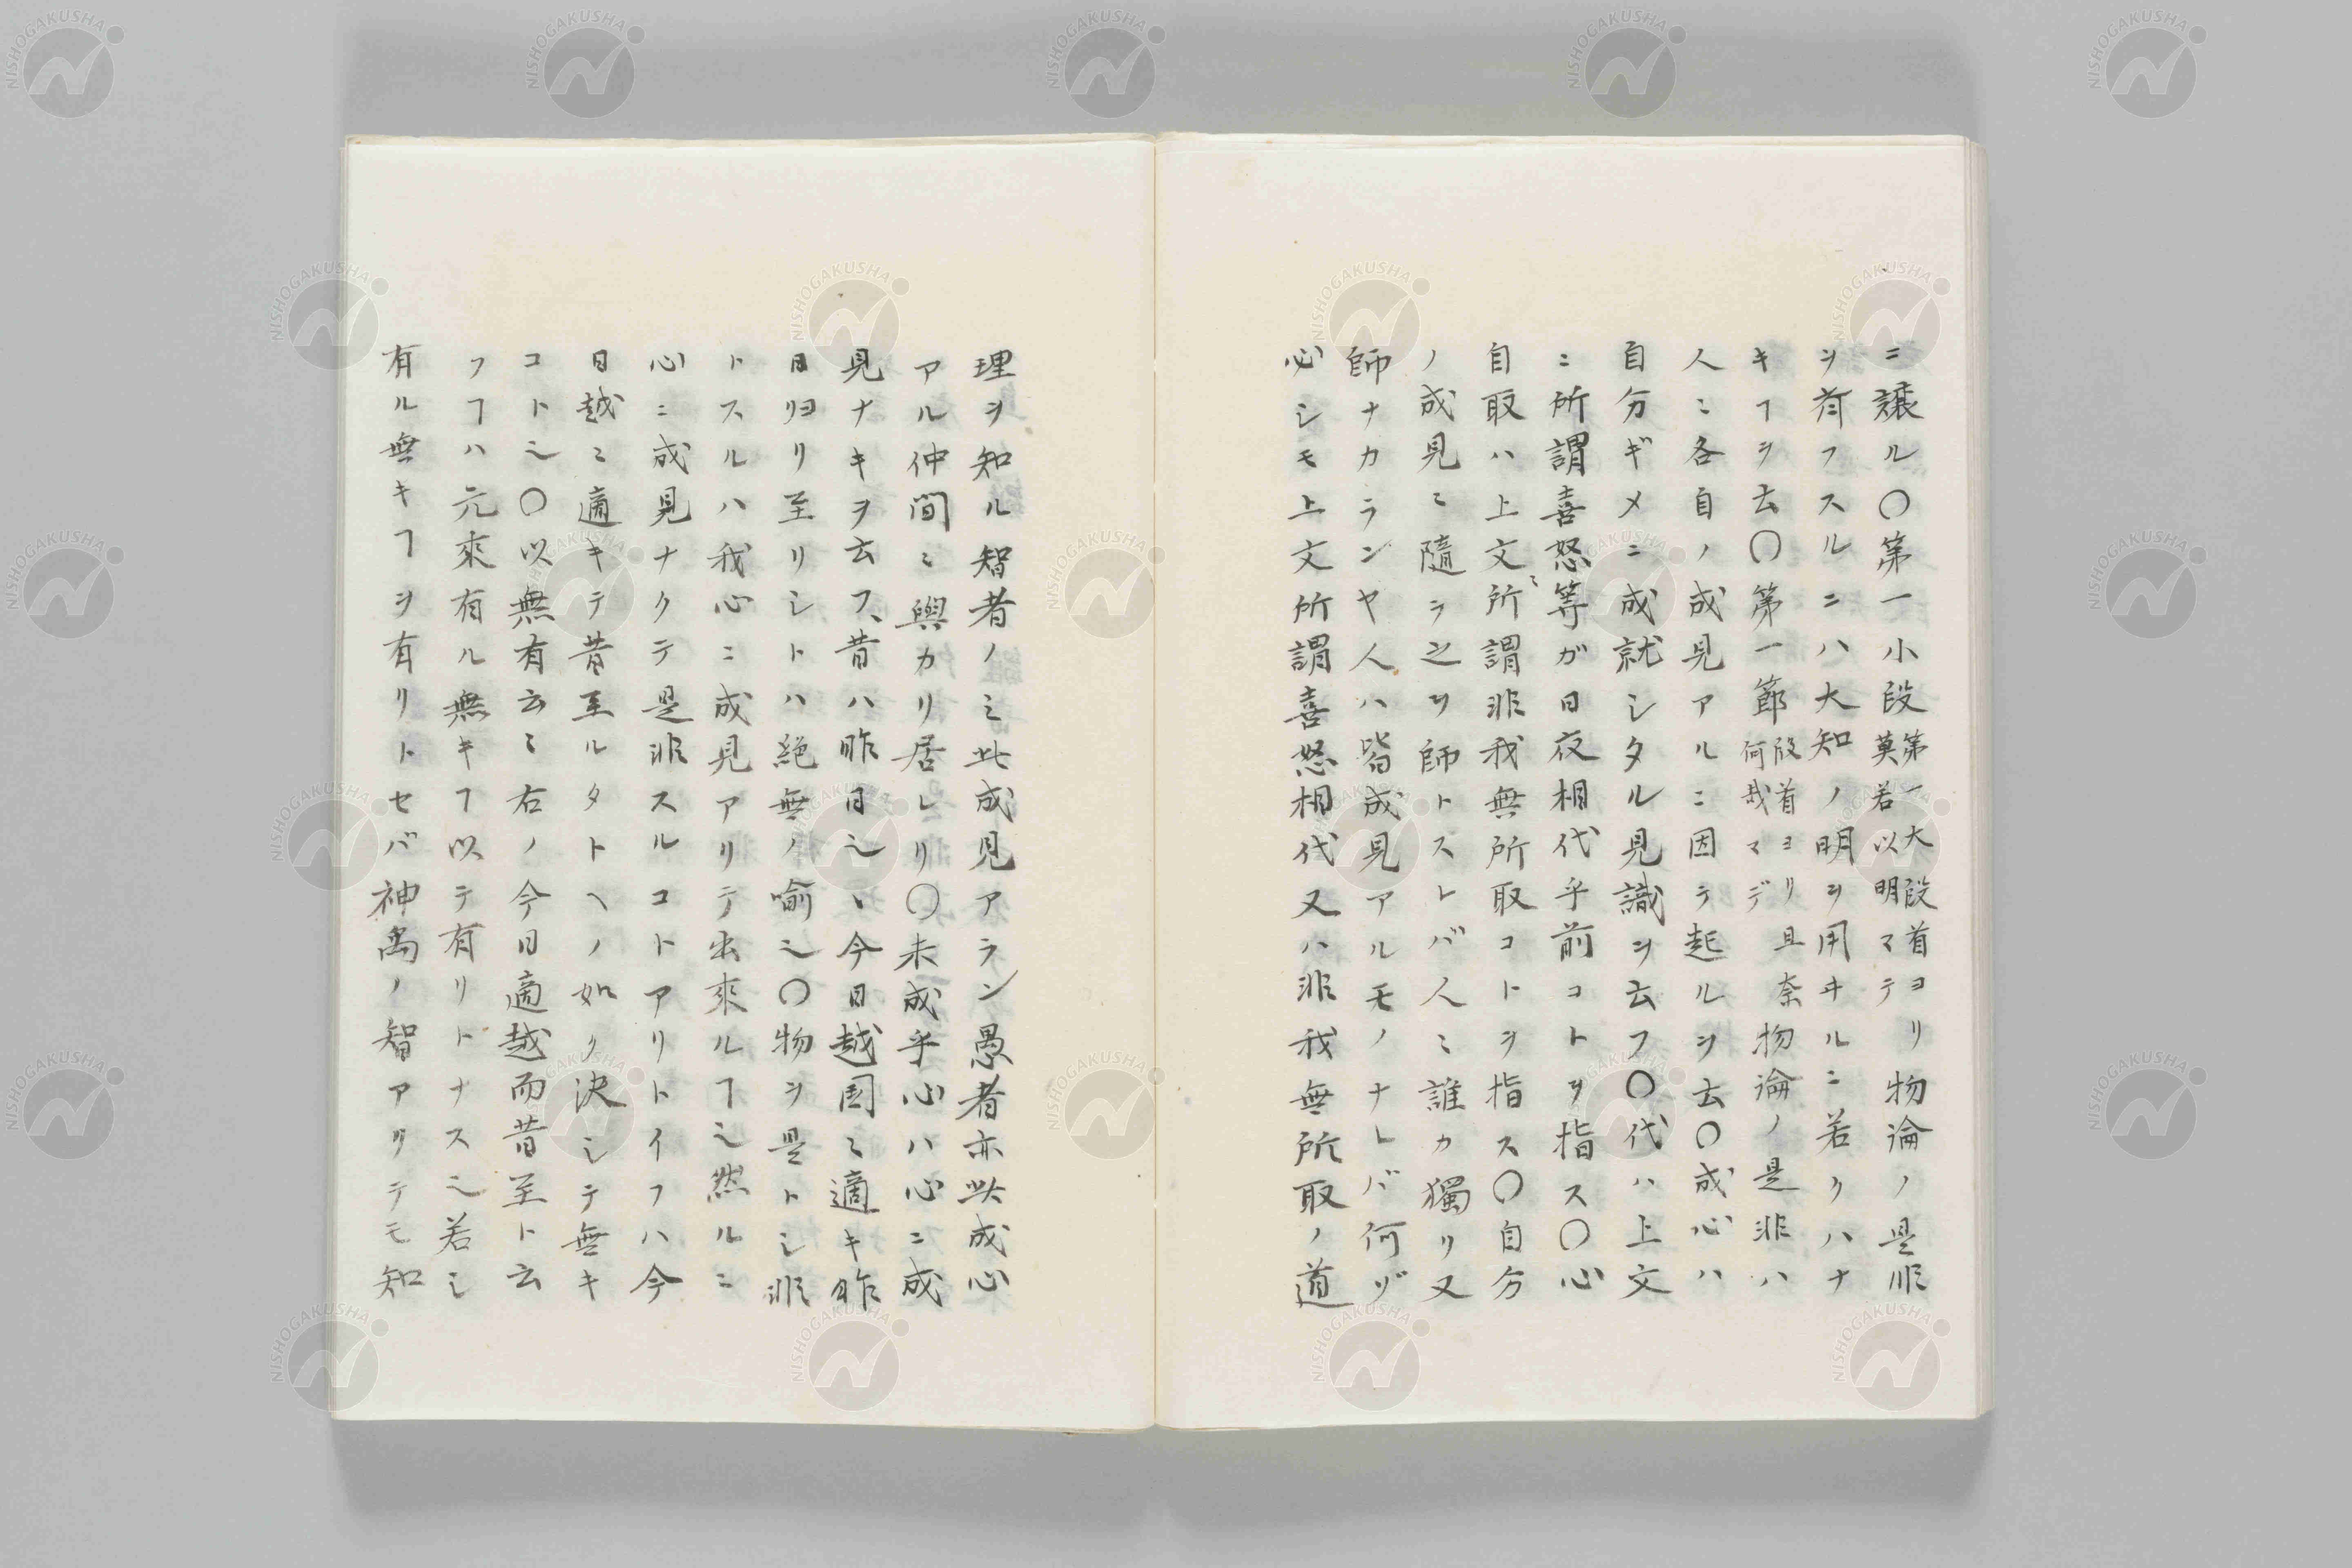 ニ譲ル〇第一小段第一大段首ヨリ莫若以明マテ物論ノ是非
ヲ斉フスルニハ大知ノ明ヲ用ヰルニ若クハナ
キヿヲ云〇第一節段首ヨリ且奈何哉マデ物論ノ是非ハ
人ニ各自ノ成見アルニ因テ起ルヲ云〇成心ハ
自分ギメニ成就シタル見識ヲ云フ〇代ハ上文
ニ所謂喜怒等ガ日夜相代乎前コトヲ指ス〇心
自取ハ上文ニ所謂非我無所取コトヲ指ス〇自分
ノ成見ニ隨ヲ之ヲ師トスレバ人ニ誰カ獨リ又
師ナカランヤ人ハ皆成見アルモノナレバ何ゾ
必シモ上文所謂喜怒相代又ハ非我無所取ノ道
理ヲ知ル智者ノミ此成見アラン愚者亦此成心
アル仲間ニ與カリ居レリ〇未成乎心ハ心ニ成
見ナキヲ云フ、昔ハ昨日也、今日越国ニ適キ昨
日归リ至リシトハ絶無ノ喻也〇物ヲ是トシ非
トスルハ我心ニ成見アリテ出來ルヿ也然ルニ
心ニ成見ナクテ是非スルコトアリトイフハ今
日越ニ適キテ昔至ルタトヘノ如ク決シテ無キ
コト也〇以無有云ニ右ノ今日適越而昔至ト云
フヿハ元來有ル無キヿ以テ有リトナス也若シ
有ル無キヿヲ有リトセバ神禹ノ智アリテモ知
NISHOGAKUSHA